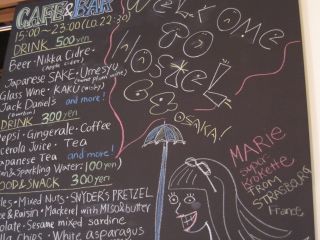 CAFE & BAR
15:00~23:00(LO.22:30)
DRINK 500yen
Beer・Nikka Cidre・
(Apple cidre)
Japanese SAKE・Umesyu
(Japanese plum wine)
Glass Wine・KAKU(wisky)
Jack Daniels and more!
(Bourbon)
DRINK 300yen
Pepsi・Gingerale・Coffee
Acerola Juice・Tea
Japanese Tea and more!
Sparkling Water:100yen)
FOOD&SNACK 300yen
Mixed Nuts・SNYDER'S PRETZEL
& Raisin・Mackerel with MISO&butter
Chocolate・Sesame mixed sardine
Chips・White asparagus
WELKOME
GO
HOSTEL
OSAKA!
MARIE
super
Kokette
FROM
STRASBOURG
France